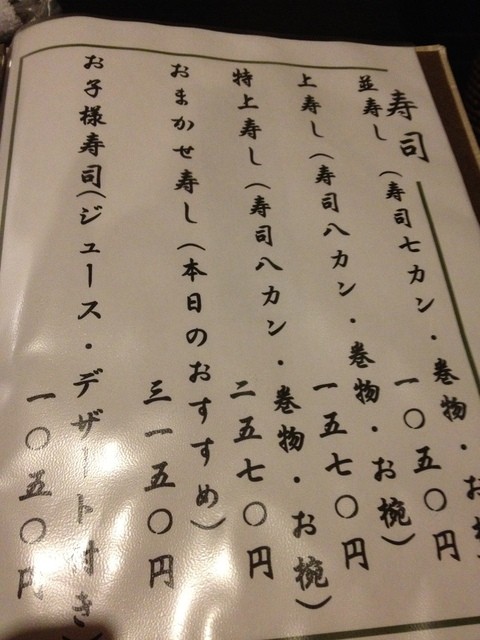 寿司
並寿し（寿司七カン・巻物・お
一〇五〇円
上寿し（寿司八カン・巻物・お椀）
一五七〇円
特上寿し（寿司八カン・巻物・お椀）
二五七〇円
おまかせ寿し（本日のおすすめ）
三一五〇円
お子様寿司（ジュース・デザート付き）
一〇五〇円